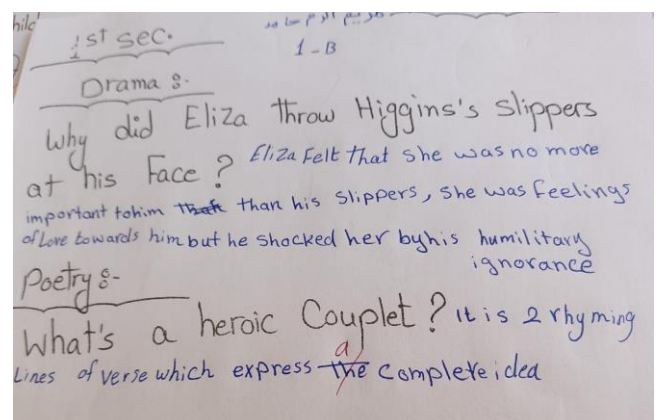 hild
1st sec.
مريم
1-B
Drama :-
Why did Eliza throw Higgins's Slippers
at his Face ? Eliza Felt that she was no more
important to him than his Slippers, she was feelings
of Love towards him but he shocked her by his humilitary
ignorance
Poetry :-
What's a heroic Couplet ? It is 2 rhyming
a
Lines of verse which express the complete idea